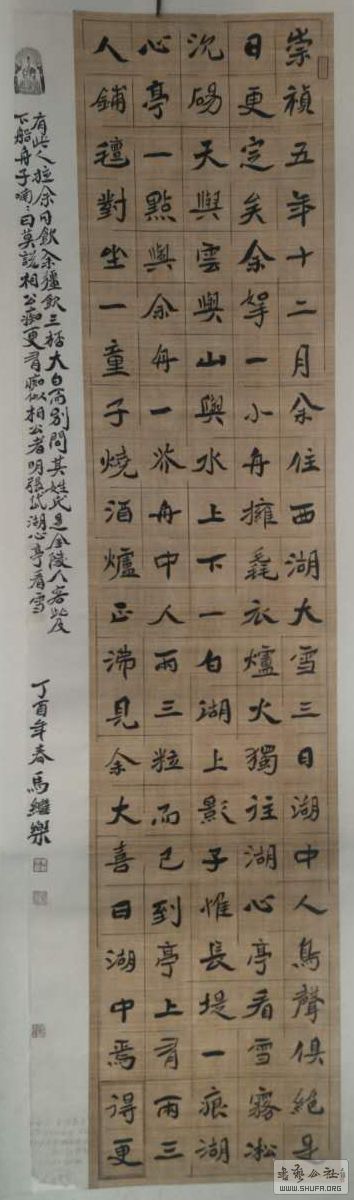 崇禎五年十二月余住西湖大雪三日湖中人鳥聲俱絕是
日更定矣余拏一小舟擁毳衣爐火獨往湖心亭看雪霧凇
沆碭天與雲與山與水上下一白湖上影子惟長堤一痕湖
心亭一點與余舟一芥舟中人兩三粒而已到亭上有兩三
人鋪氊對坐一童子燒酒爐正沸見余大喜曰湖中焉得更
有此人拉余同飲余彊飲三桮大白而別問其姓氏是金陵人客此及
下船舟子喃〻曰莫說相公痴更有痴似相公者明張岱湖心亭看雪
丁酉年春馬繼樂
書藝公社
WWW.SHUFA.ORG